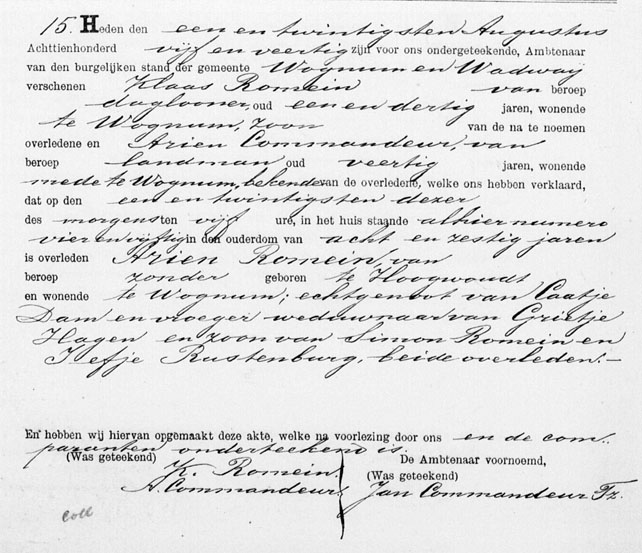 15. Heden den een en twintigsten Augustus
Achttienhonderd vijf en veertig zijn voor ons ondergeteekende, Ambtenaar
van den burgelijken stand der gemeente Wognum en Wadway
verschenen Klaas Romein van beroep
daglooner, oud een en dertig jaren, wonende
te Wognum, zoon van de na te noemen
overledene en Arien Commandeur, van
beroep landman oud veertig jaren, wonende
mede te Wognum, bekende van de overledene, welke ons hebben verklaard,
dat op den een en twintigsten dezer
des morgens ten vijf ure, in het huis staande alhier numero
vier en vijftig in den ouderdom van acht en zestig jaren
is overleden Arien Romein, van
beroep zonder geboren te Hoogwoudt
en wonende te Wognum; echtgenoot van Caatje
Dam en vroeger weduwnaar van Grietje
Hagen en zoon van Simon Romein en
Jefje Rustenburg, beide overleden.—
En hebben wij hiervan opgemaakt deze akte, welke na voorlezing door ons en de com„
paranten onderteekend is.
(Was geteekend) De Ambtenaar voornoemd,
K. Romein. (Was geteekend)
A. Commandeur. Jan Commandeur Fz.
Coll